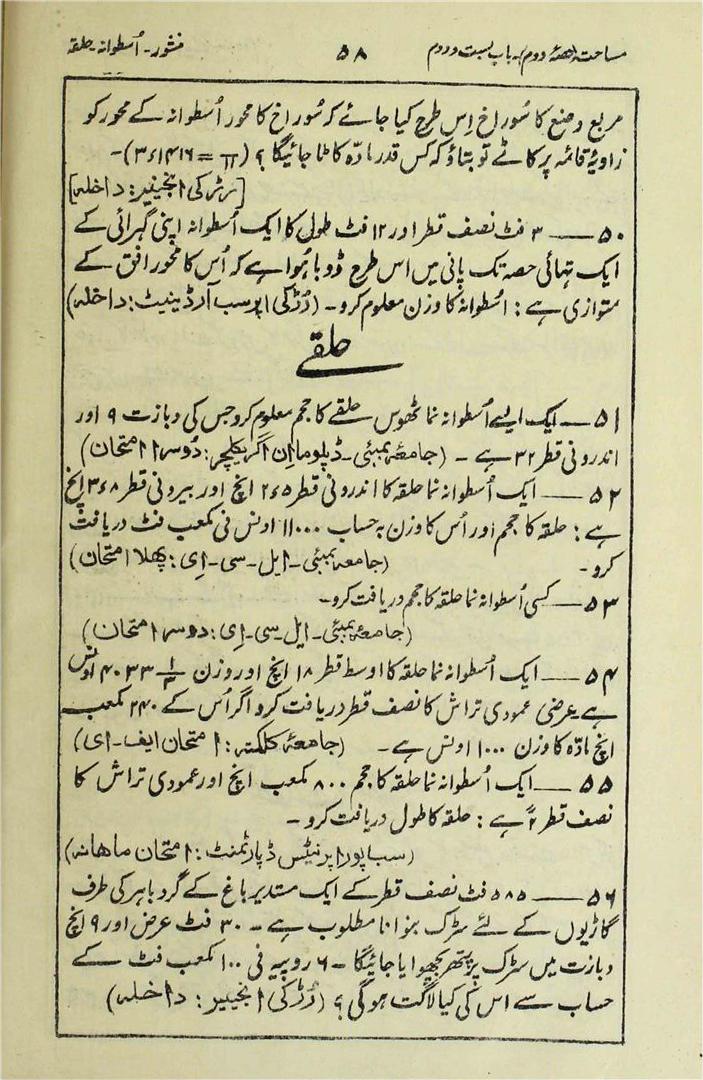 مساحت (حصۂ دوم)۔ باب بست و دوم ۵۸ منشور۔ اُسطوانہ۔ حلقہ
مربع وضع کا سُوراخ اِس طرح کیا جائے کہ سُوراخ کا محور اُسطوانہ کے محور کو
زاویۂ قائمہ پر کاٹے تو بتاؤ کہ کس قدر مادّہ کاٹا جائیگا ؟ (π = ۳٫۱۴۱۶)۔
[رڑکی انجینیر: داخلہ]
۵۰ ــــ ۳ فٹ نصف قطر اور ۱۲ فٹ طول کا ایک اُسطوانہ اپنی گہرائی کے
ایک تہائی حصہ تک پانی میں اس طرح ڈوبا ہُوا ہے کہ اُس کا محور افق کے
متوازی ہے : اسُطوانہ کا وزن معلوم کرو۔ (رُڑکی اپر سب آرڈینیٹ: داخلہ)
حلقے
۵۱ ــــ ایک ایسے اُسطوانہ نما ٹھوس حلقے کا حجم معلوم کرو جس کی دبازت ۹ اور
اندرونی قطر ۳۲ ہے ۔ (جامعۂ بمبئی۔ ڈپلوما اِن اگریکلچر: دُوسرا امتحان)
۵۲ ــــ ایک اُسطوانہ نما حلقہ کا اندرونی قطر ۲٫۵ انچ اور بیرونی قطر ۳٫۸ انچ
ہے : حلقہ کا حجم اور اُس کا وزن بہ حساب ۱۱۰۰۰ اونس فی مکعب فٹ دریافت
کرو۔ (جامعہ بمبئی۔ ایل۔ سی۔ اِی: پہلا امتحان)
۵۳ ــــ کسی اُسطوانہ نما حلقہ کا حجم دریافت کرو۔
(جامعۂ بمبئی۔ ایل۔ سی۔ اِی: دوسرا امتحان)
۵۴ ــــ ایک اُسطوانہ نما حلقہ کا اوسط قطر ۱۸ انچ اور وزن اونس
ہے عرضی عمودی تراش کا نصف قطر دریافت کرو اگر اُس کے ۲۴۰ مکعب
انچ مادّہ کا وزن ۱۰۰۰ اونس ہے۔ (جامعۂ کلکتہ: امتحان ایف۔ ای)
۵۵ ــــ ایک اُسطوانہ نما حلقہ کا حجم ۸۰۰ مکعب انچ اور عمودی تراش کا
نصف قطر ۲ً ہے : حلقہ کا طول دریافت کرو ۔
(سب پور اپرنٹس ڈپارٹمنٹ: امتحان ماہانہ)
۵۶ ــــ ۵۸۵ فٹ نصف قطر کے ایک مستدیر باغ کے گرد باہر کی طرف
گاڑیوں کے لئے سڑک بنوانا مطلوب ہے ۔ ۳۰ فٹ عرض اور ۹ انچ
دبازت میں سڑک پر پتھر بچھوایا جائیگا ۔ ۶ روپیہ فی ۱۰۰ مکعب فٹ کے
حساب سے اس کی کیا لاگت ہوگی ؟ (رُڑکی انجینیر : داخلہ)